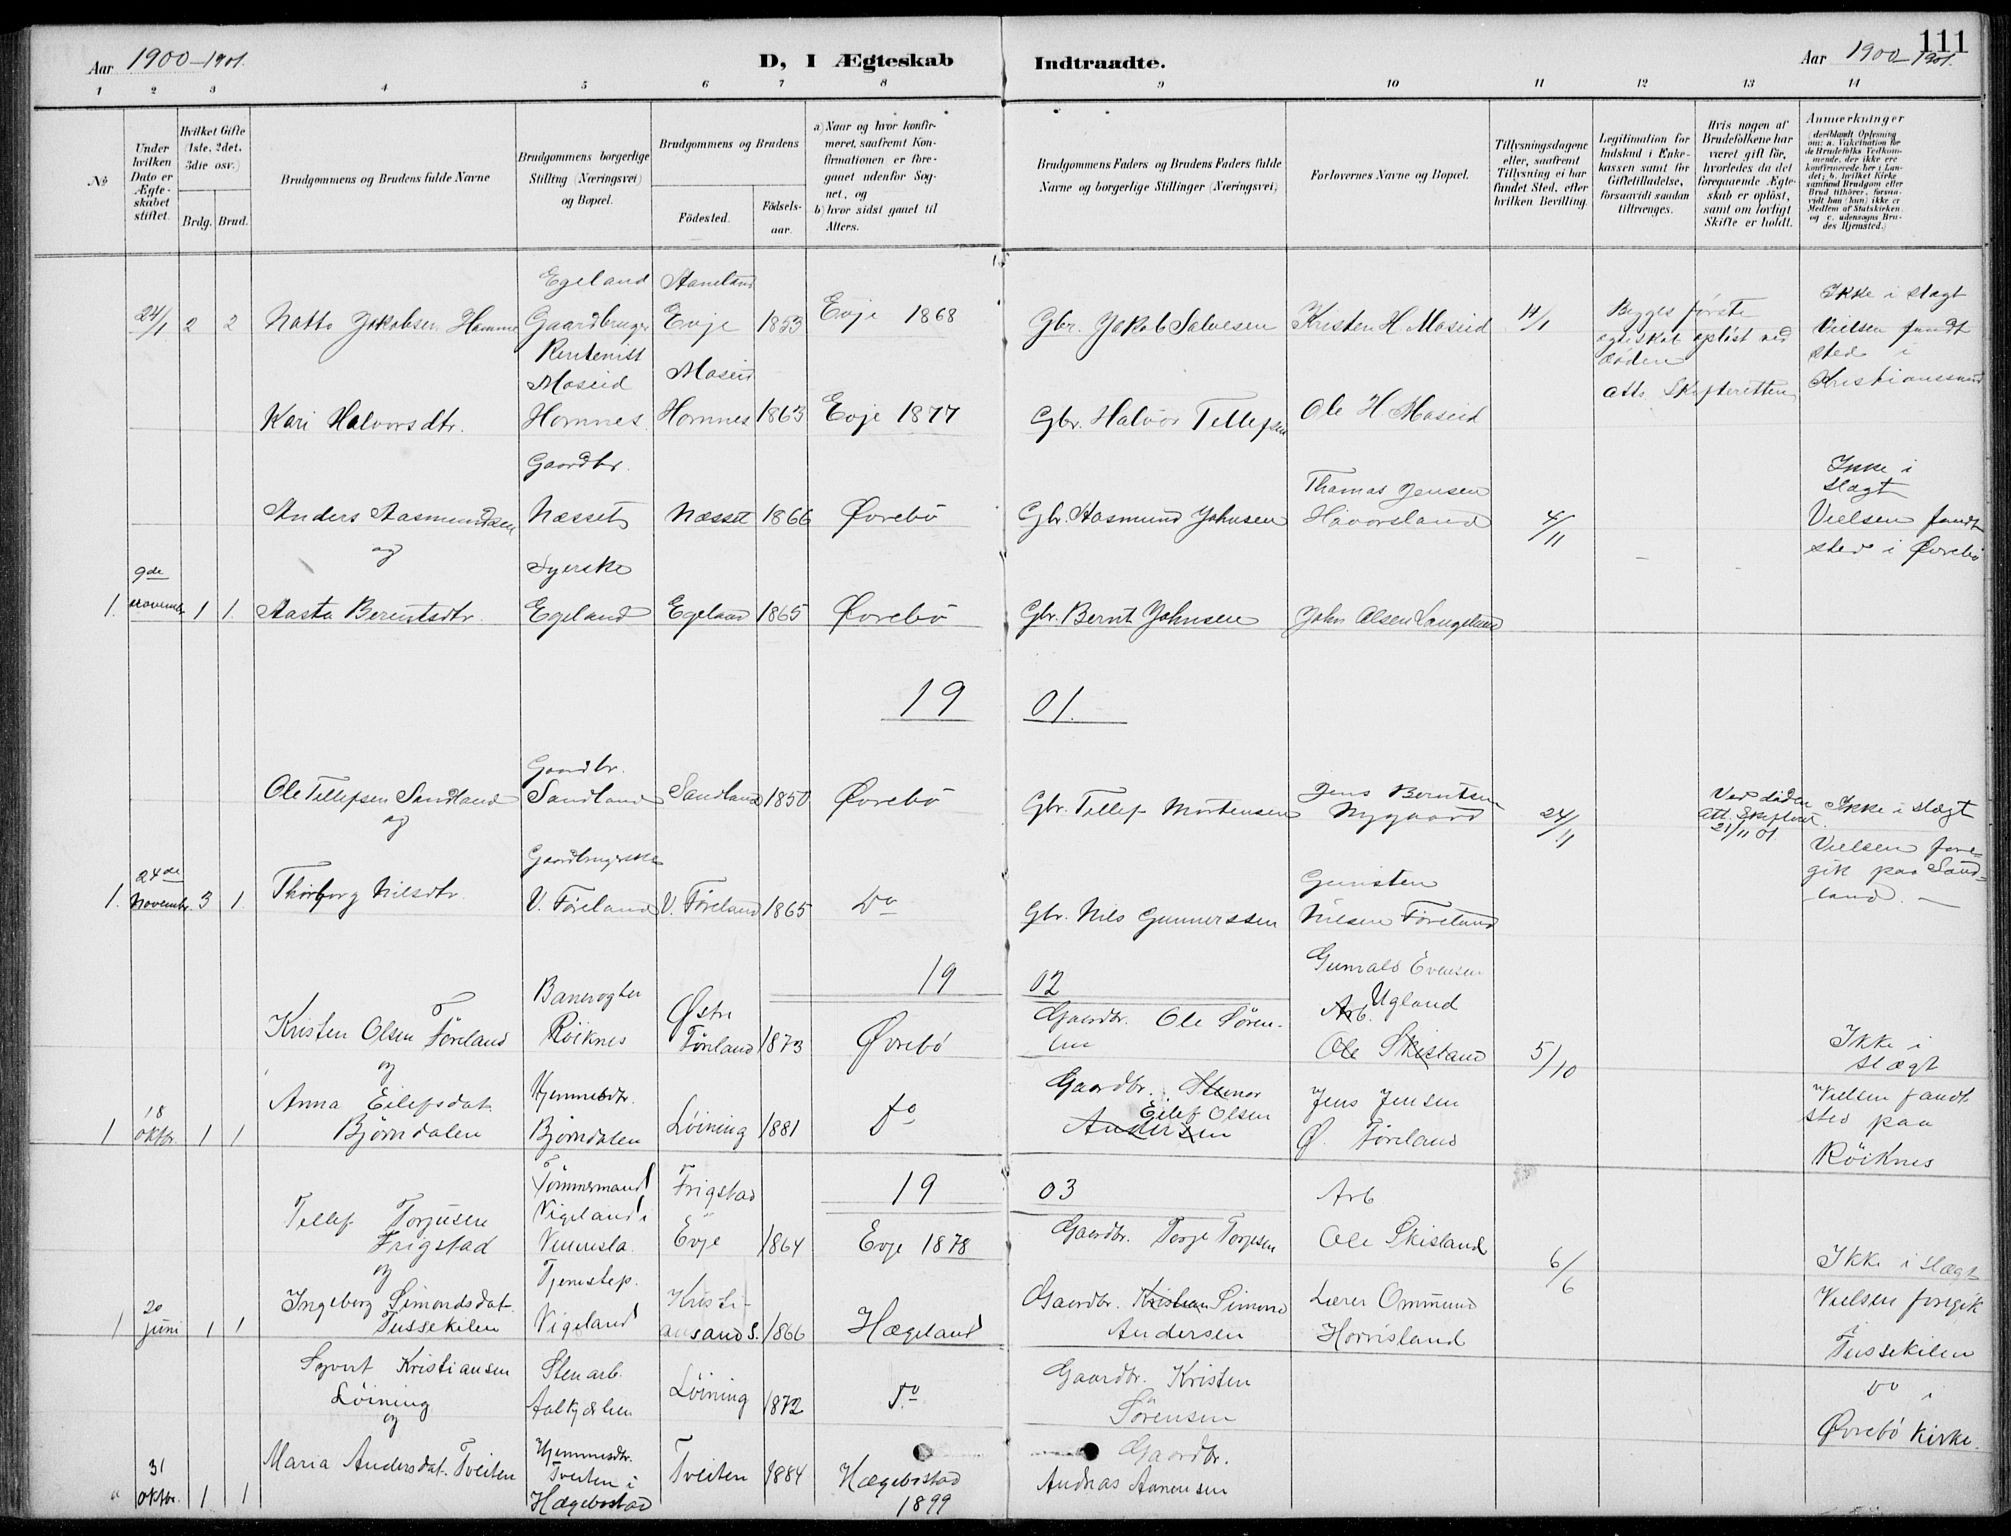 111
Aar 1900-1901.
D, I Ægteskab Indtraadte.
Aar 1900-1901.
1 2 3 4 5 6 7 8 9 10 11 12 13 14
No
Under hvilken Dato er Ægteskabet stiftet.
Hvilket Gifte (1ste, 2det, 3die osv.)
Brdg. Brud.
Brudgommens og Brudens fulde Navne
Brudgommens borgerlige Stilling (Næringsvei) og Bopæl.
Brudgommens og Brudens
Födested.
Födselsaar.
a) Naar og hvor konfirmeret, saafremt Konfirmationen er foregaaet udenfor Sognet, og
b) hvor sidst gaaet til Alters.
Brudgommens Faders og Brudens Faders fulde Navne og borgerlige Stillinger (Næringsvei)
Forlovernes Navne og Bopæl.
Tillysningsdagene eller, saafremt Tillysning ei har fundet Sted, efter hvilken Bevilling.
Legitimation for Indskud i Enkekassen samt for Giftetilladelse, forsaavidt saadan tiltrænges.
Hvis nogen af Brudefolkene har været gift før, hvorledes da det foregaaende Ægteskab er opløst, samt om lovligt Skifte er holdt.
Anmerkninger
(deriblandt Oplysning om: a. Vakcination for de Brudefolks Vedkommende, der ikke ere konfirmerede her i Landet; b. hvilket Kirkesamfund Brudgom eller Brud tilhører, forsaavidt han (hun) ikke er Medlem af Statskirken og c. udensogns Brudes Hjemsted.)
Egeland Aaneland
24/1 2 2 Gaardbruger Evje 1853 Evje 1868 Gbr. Jakob Salvesen Kristen H. Moseid 14/1 Begges første Ikke i slægt
Rentenist Moseid ægteskab opløst ved døden Vielsen fandt
Moseid Att. Skifteretten sted i
Kari Halvorsdtr. Hornnes Hornnes 1863 Evje 1877 Gbr. Halvor Tellefsen Ole H Moseid Kristianssand
Gaardbr. Ikke i
Thomas Jensen slægt
Anders Aasmundsen Næsset Næsset 1866 Øvrebö Gbr. Aasmund Johnsen Haavorsland 4/11 Vielsen fandt
og sted i Øvrebö
9de Syerske
1. novembr 1 1. Aasta Berentsdtr. Egeland Egeland 1865 Øvrebö Gbr. Bernt Johnsen John Olsen Langeland
19 01.
Gaardbr.
Ole Tellefsen Sandland Sandland Sandland 1850 Øvrebö Gbr. Tellef Mortensen Jens Berntsen Nygaard 24/11 Ved døden Att. Skifteret 21/11 01. Ikke i slægt
og Vielsen fore-
24de Gaardbrugerske gik paa Sand-
1. Novembr. 3 1. Thorborg Nilsdtr. V. Föreland V. Föreland 1865 Do Gbr. Nils Gunnerssen Gunsten Nilsen Föreland land. -
19 02
Banevogter Østre Gunvald Evensen Ugland
Kristen Olsen Föreland Röiknes Föreland 1873 Øvrebö Gaardbr. Ole Sören- sen Arb. Ole Skisland 5/10 Ikke i slægt
og
Anna Eilefsdat. Hjemmedtr. Gaardbr. Stenor Eilef Olsen Jens Jensen Vielsen fandt
1 18 oktbr. 1 1 Björndalen Björndalen Löining 1881 Do Andersen Ø. Föreland sted paa
Röiknes
19 03
Tömmermand Frigstad Arb
Tellef Torjusen Vigeland i
Frigstad Vennesla. Evje 1864 Evje 1878 Gaardbr. Torje Torjesen Ole Skisland 6/6 Ikke i slægt
og Tjenestep.
Ingeborg Simondsdat. Kristi- Gaardbr. Kristian Simond Lærer Ommund Vielsen foregik i
1 20 juni 1 1 Tussekilen Vigeland ansand S. 1866 Hægeland Andersen Horrisland Tussekilen
Syvert Kristiansen Stenarb. Gaardbr. Kristen Do i
Löining Aalkjælen Löining 1872 Do Sörensen Øvrebö Kirke.
og
Hjemmedtr. Gaardbr.
" 31 oktbr. 1 1 Maria Andersdat. Tveiten Tveiten i Tveiten 1884 Hægebostad Andreas Aanensen
Hægebostad 1899